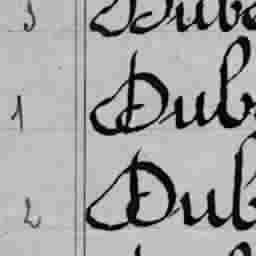 3 Dub
1 Dub
2 Dub